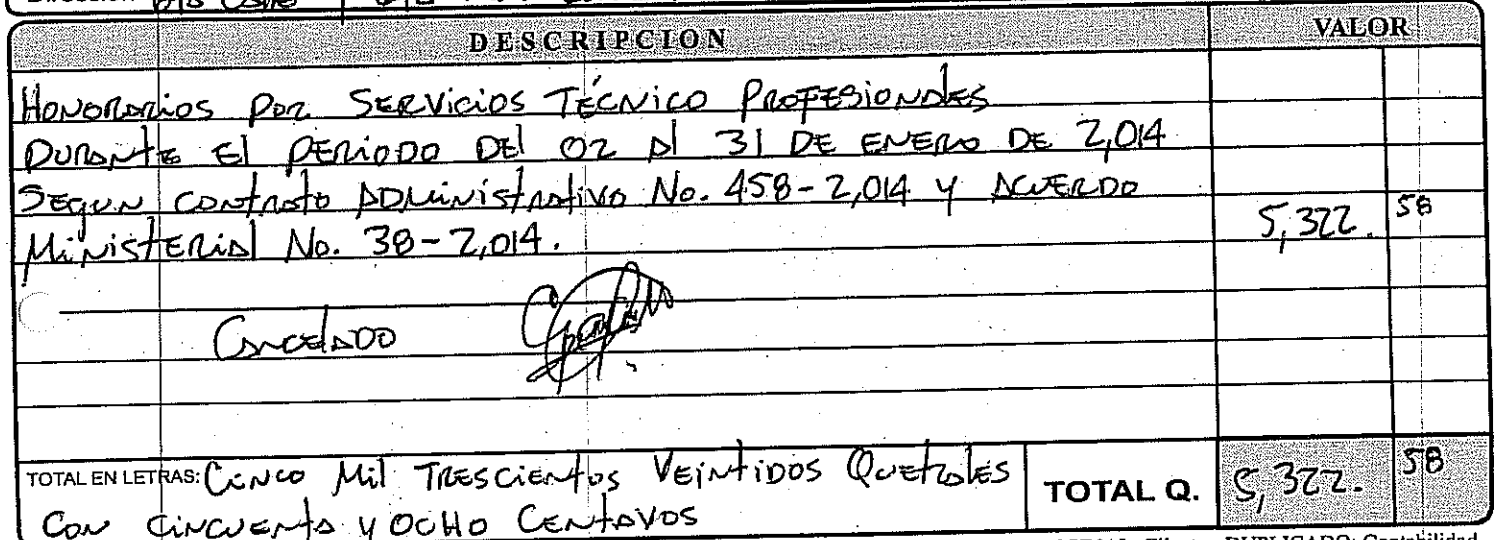 DESCRIPCION VALOR
Honorarios por Servicios Técnico Profesionales
Durante el periodo del 02 al 31 de Enero de 2,014
Segun contrato Administrativo No. 458-2,014 y Acuerdo
Ministerial No. 38-2,014. 5,322. 58
Cancelado
TOTAL EN LETRAS: Cinco Mil Trescientos Veintidos Quetzales
Con cincuenta y ocho Centavos
TOTAL Q. 5,322. 58
DUPLICADO: Contabilidad